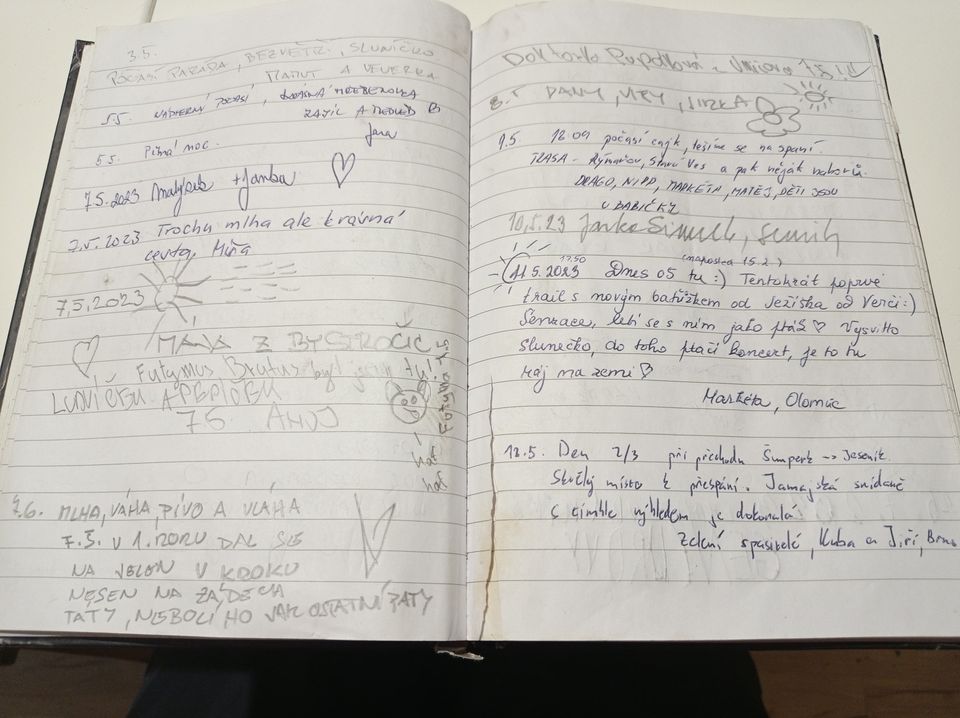 3.5.
POČASÍ PARÁDA, BEZVĚTŘÍ, SLUNÍČKO
MAMUT A VEVERKA
5.5. NÁDHERNÉ POČASÍ, KRÁSNÁ HŘEBENOVKA
ZAJÍC A MEDVĚD B
Jana
5.5. Pěkná moc.
7.5.2023 + Janka
7.5.2023 Trocha mlha ale krásná
cesta, Míša
7.5.2023
MÁŇA Z BYSTROČIC
Futymus Brutus byl jsem tu!
7.5.
LUDVÍČKU A PEPÍČKU
7.5. AHOJ
haf
haf
7.6. MLHA, VÁHA, PIVO A VLÁHA
7.5. V 1. ROKU DAL SE
NA JELEN V KROKU
NESEN NA ZÁDECH
TATY, NEBOLÍ HO JAK OSTATNÍ PATY
Doktorka 7.5.!
8.5 DANY, JIRKA
9.5. 18:09 počasí cajk, těšíme se na spaní.
TRASA - Rýmařov, Stará Ves a pak nějak nahorů.
DRAGO, NIPP, MARKÉTA, MATĚJ, DĚTI JSOU
U BABIČKY
10.5.23 Janka Semich
17.50 (naposled 15.2.)
11.5.2023 Dnes os tu :) Tentokrát poprvé
trail s novým batůžkem od Ježíška od Verči :)
Senzace, letí se s ním jako pták ♡ Vysvitlo
slunéčko, do toho ptačí koncert, je to tu
ráj na zemi ♡
Markéta, Olomouc
18.5. Den 2/3 při přechodu Šumperk -> Jeseník.
Skvělý místo k přespání. Jamajská snídaně
s tímhle výhledem je dokonalá.
Zelení spasitelé, Kuba a Jiří, Brno